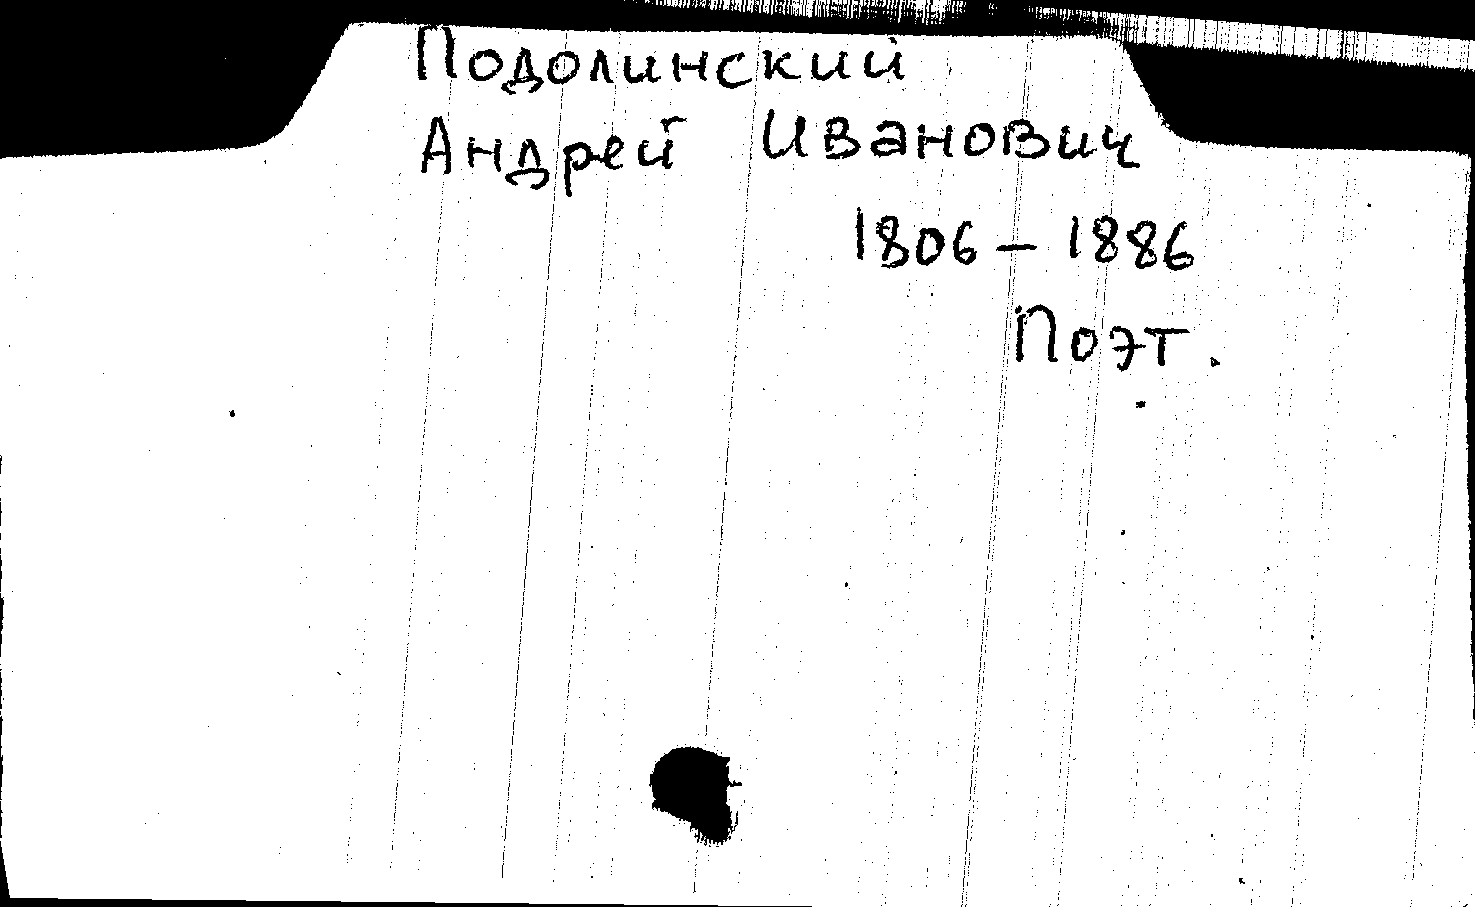 Подолинский
Андрей Иванович
1806 – 1886
Поэт.